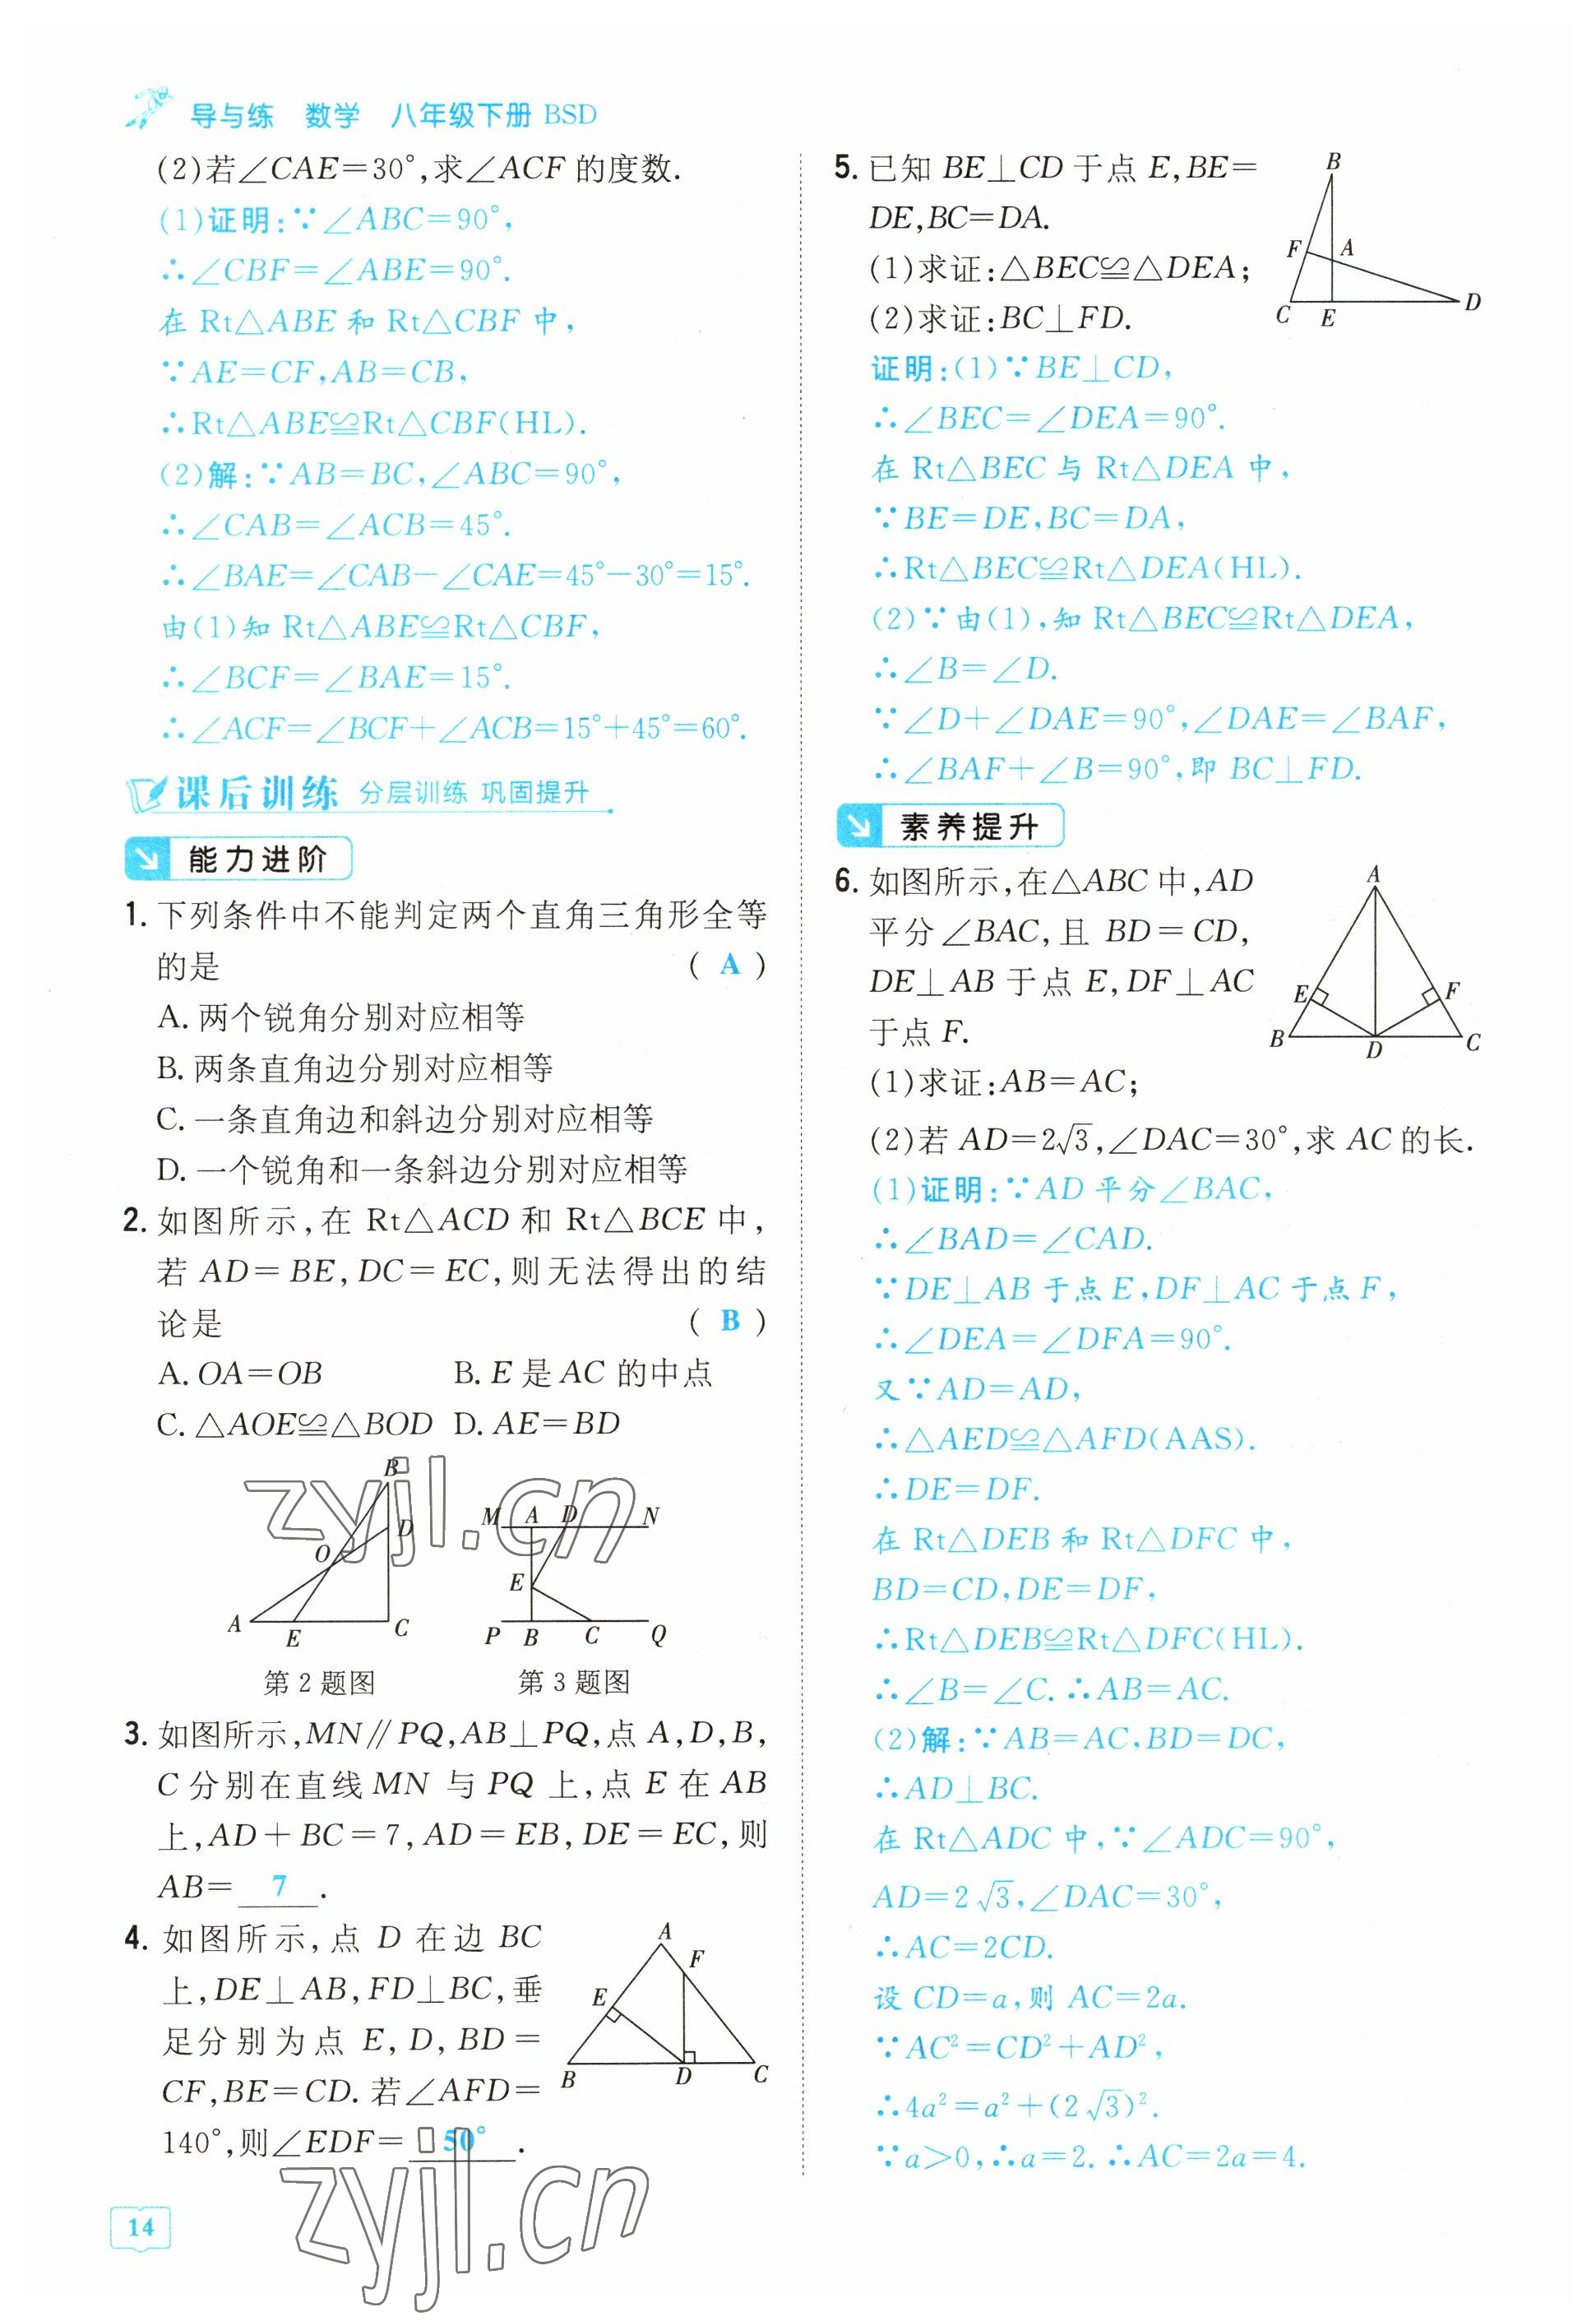 导与练 数学 八年级下册 BSD
(2)若∠CAE=30°,求∠ACF 的度数.
(1)证明:∵∠ABC=90°,
∴∠CBF=∠ABE=90°.
在 Rt△ABE 和 Rt△CBF 中,
∵AE=CF,AB=CB,
∴Rt△ABE≌Rt△CBF(HL).
(2)解:∵AB=BC,∠ABC=90°,
∴∠CAB=∠ACB=45°.
∴∠BAE=∠CAB-∠CAE=45°-30°=15°.
由(1)知 Rt△ABE≌Rt△CBF,
∴∠BCF=∠BAE=15°.
∴∠ACF=∠BCF+∠ACB=15°+45°=60°.
课后训练 分层训练 巩固提升
能力进阶
1. 下列条件中不能判定两个直角三角形全等
的是 ( A )
A. 两个锐角分别对应相等
B. 两条直角边分别对应相等
C. 一条直角边和斜边分别对应相等
D. 一个锐角和一条斜边分别对应相等
2. 如图所示,在 Rt△ACD 和 Rt△BCE 中,
若 AD=BE,DC=EC,则无法得出的结
论是 ( B )
A. OA=OB B. E 是 AC 的中点
C. △AOE≌△BOD D. AE=BD
B
D
O
A
E
C
第 2 题图
M A D N
E
P B C Q
第 3 题图
zyjl.cn
3. 如图所示,MN∥PQ,AB⊥PQ,点 A,D,B,
C 分别在直线 MN 与 PQ 上,点 E 在 AB
上,AD+BC=7,AD=EB,DE=EC,则
AB= 7 .
4. 如图所示,点 D 在边 BC
上,DE⊥AB,FD⊥BC,垂
足分别为点 E,D,BD=
CF,BE=CD.若∠AFD=
140°,则∠EDF= 50° .
A
F
E
B
D
C
zyjl.cn
14
5. 已知 BE⊥CD 于点 E,BE=
DE,BC=DA.
(1)求证:△BEC≌△DEA;
(2)求证:BC⊥FD.
B
F A
C E
D
证明:(1)∵BE⊥CD,
∴∠BEC=∠DEA=90°.
在 Rt△BEC 与 Rt△DEA 中,
∵BE=DE,BC=DA,
∴Rt△BEC≌Rt△DEA(HL).
(2)∵由(1),知 Rt△BEC≌Rt△DEA,
∴∠B=∠D.
∵∠D+∠DAE=90°,∠DAE=∠BAF,
∴∠BAF+∠B=90°,即 BC⊥FD.
素养提升
6. 如图所示,在△ABC 中,AD
平分∠BAC,且 BD=CD,
DE⊥AB 于点 E,DF⊥AC
于点 F.
A
E F
B D C
(1)求证:AB=AC;
(2)若 AD=2√3,∠DAC=30°,求 AC 的长.
(1)证明:∵AD 平分∠BAC,
∴∠BAD=∠CAD.
∵DE⊥AB 于点 E,DF⊥AC 于点 F,
∴∠DEA=∠DFA=90°.
又∵AD=AD,
∴△AED≌△AFD(AAS).
∴DE=DF.
在 Rt△DEB 和 Rt△DFC 中,
BD=CD,DE=DF,
∴Rt△DEB≌Rt△DFC(HL).
∴∠B=∠C.∴AB=AC.
(2)解:∵AB=AC,BD=DC,
∴AD⊥BC.
在 Rt△ADC 中,∵∠ADC=90°,
AD=2√3,∠DAC=30°,
∴AC=2CD.
设 CD=a,则 AC=2a.
∵AC²=CD²+AD²,
∴4a²=a²+(2√3)².
∵a>0,∴a=2.∴AC=2a=4.